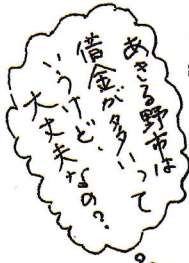 あきる野市は
借金が多いって
いうけど、
大丈夫なの?